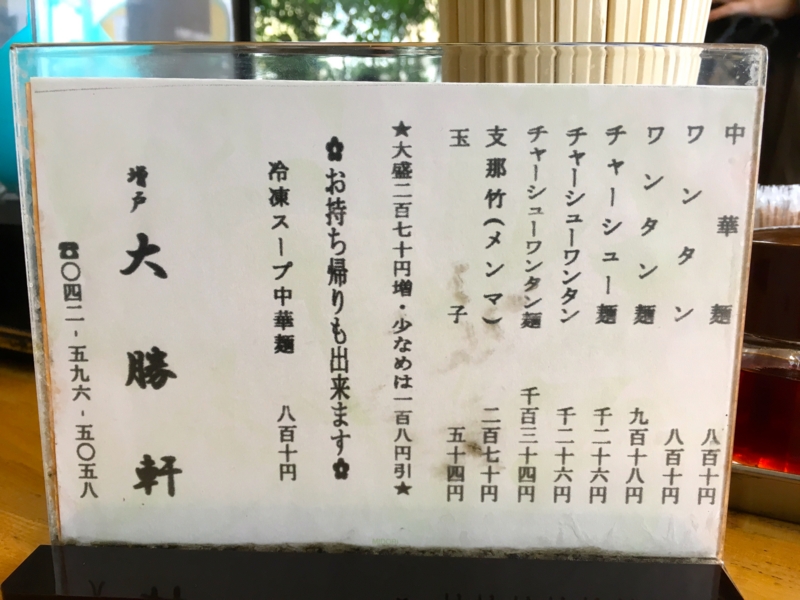 中華麺 八百十円
ワンタン 八百十円
ワンタン麺 九百十八円
チャーシュー麺 千二十六円
チャーシューワンタン 千二十六円
チャーシューワンタン麺 千百三十四円
支那竹(メンマ) 二百七十円
玉子 五十四円
★大盛二百七十円増・少なめは一百八円引★
✿お持ち帰りも出来ます✿
冷凍スープ中華麺 八百十円
増戸 大勝軒
☎〇四二-五九六-五〇五八